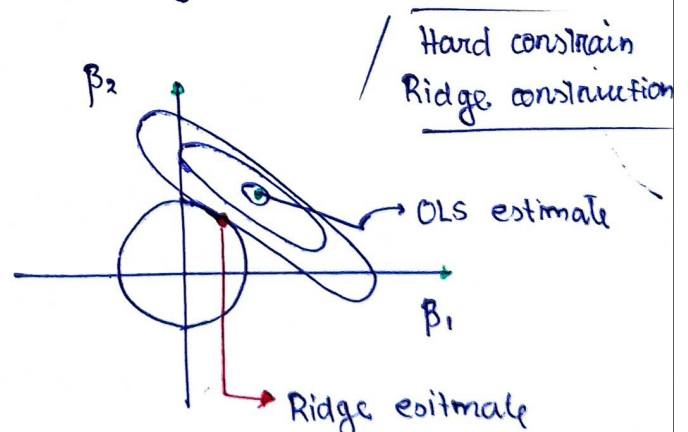 Hard constrain
Ridge construction
β₂
OLS estimate
β₁
Ridge esitmate